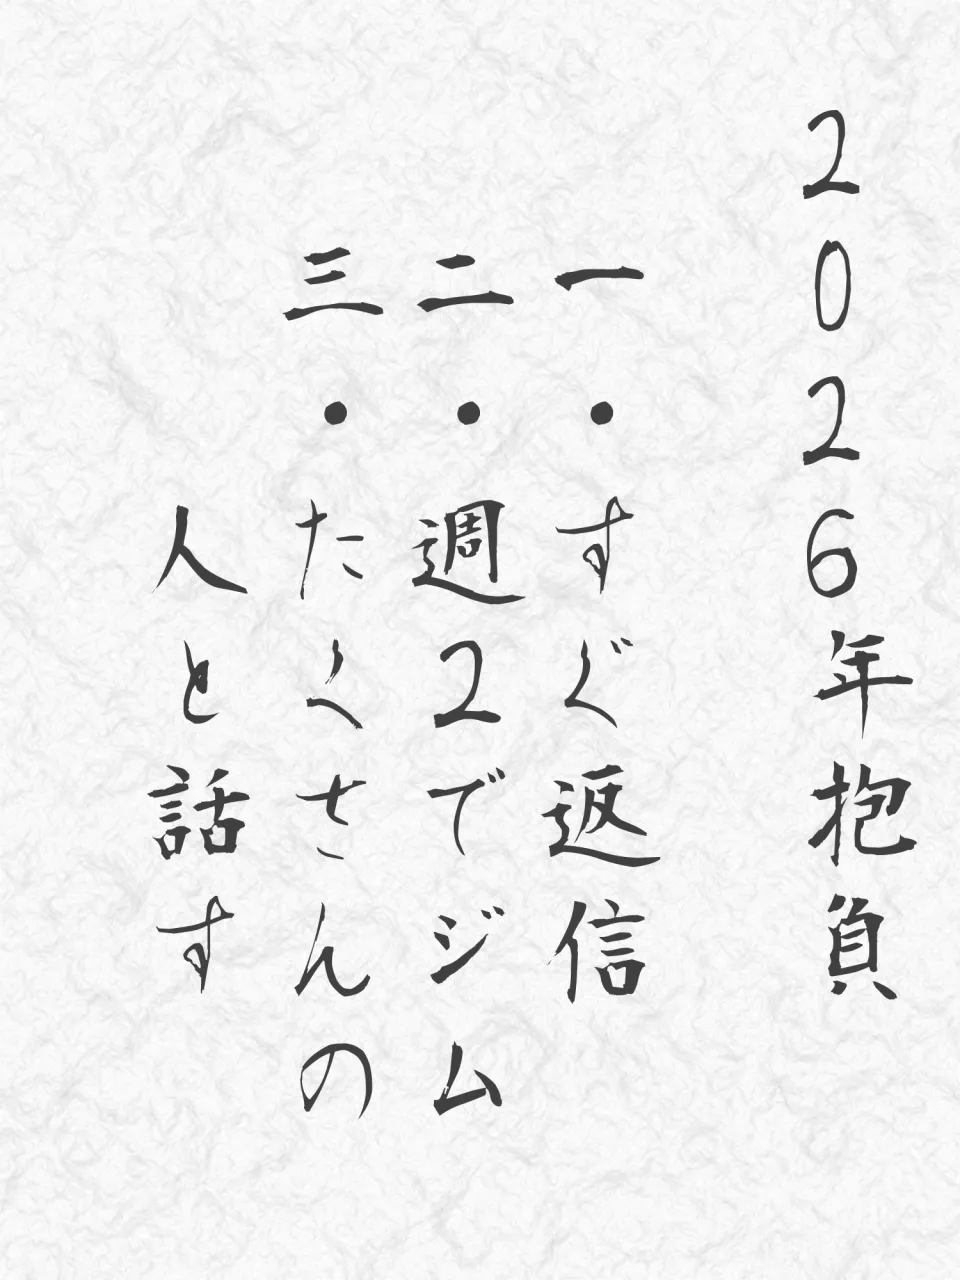 2026年抱負
一・すぐ返信
二・週2でジム
三・たくさんの
人と話す